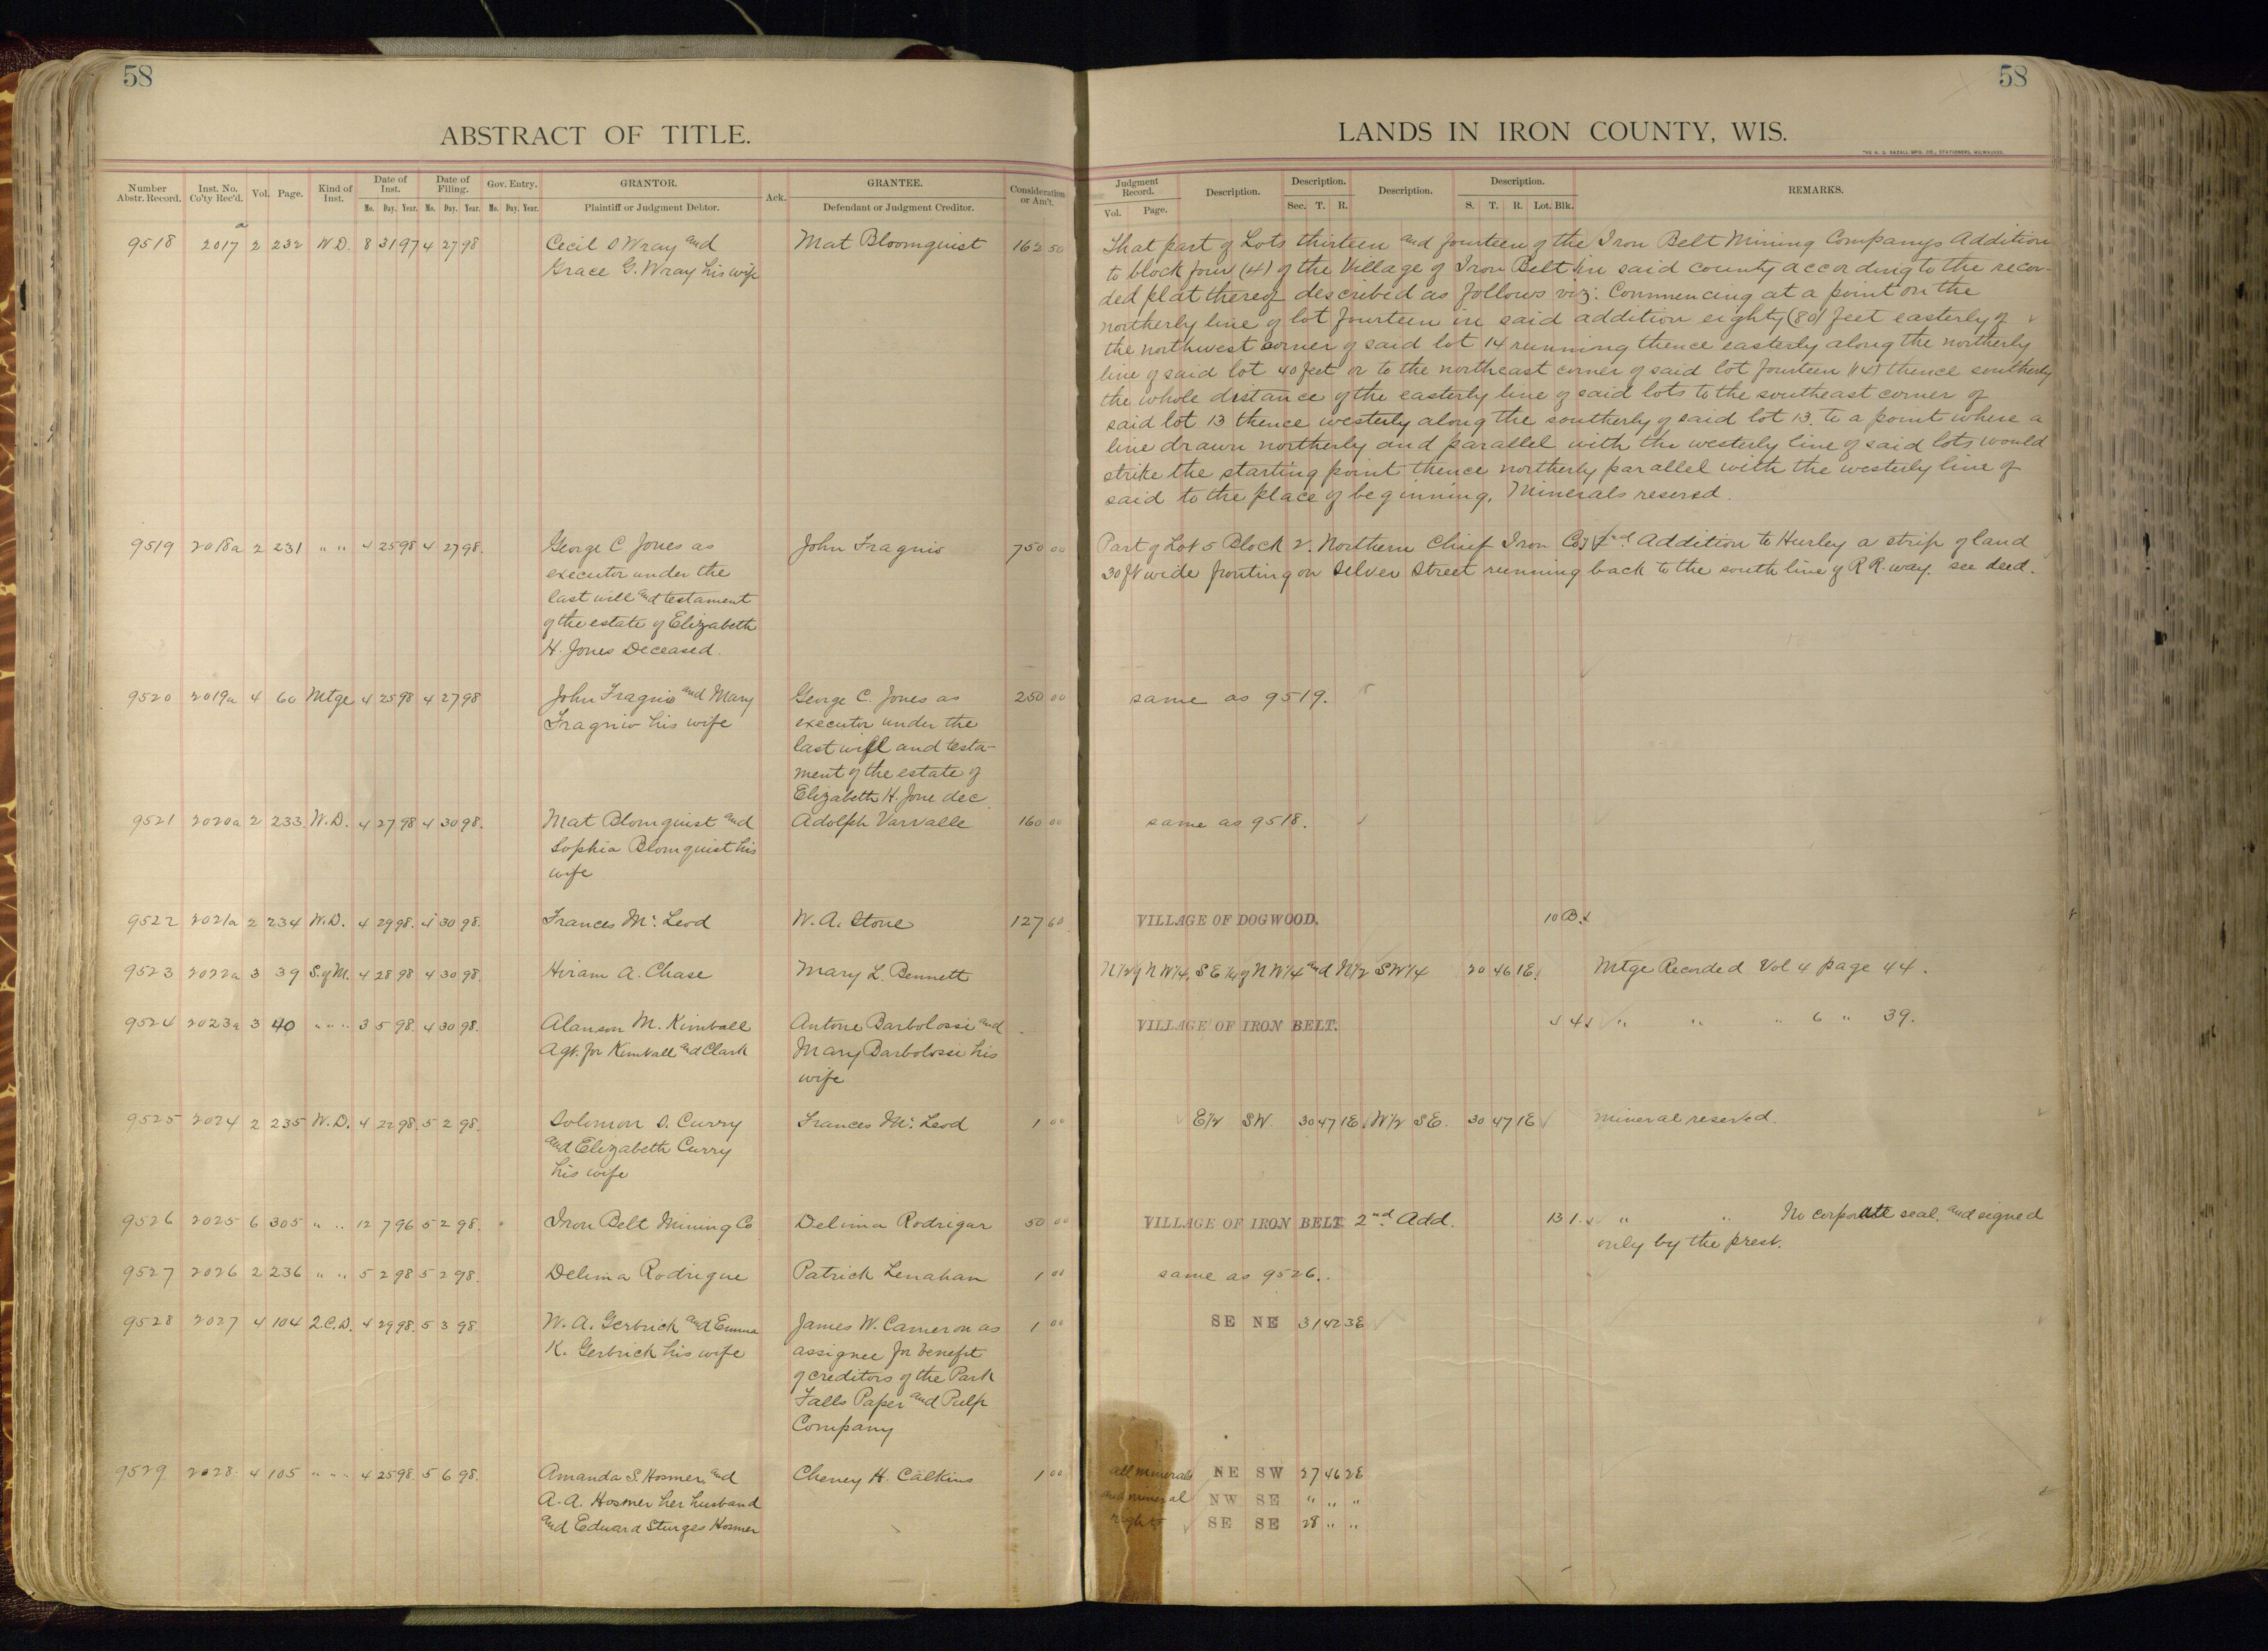 58
ABSTRACT OF TITLE.
Number Abstr. Record. Inst. No. Co'ty Rec'd. Vol. Page. Kind of Inst. Date of Inst. Mo. Day. Year. Date of Filing. Mo. Day. Year. Gov. Entry. Mo. Day. Year. GRANTOR. Plaintiff or Judgment Debtor. Ack. GRANTEE. Defendant or Judgment Creditor. Consideration or Am't.
9518 2017a 2 232 W.D. 8 31 97 4 27 98 Cecil D Wray and Mat Bloomquist 162 50
Grace G. Wray his wife
9519 2018a 2 231 " " 4 25 98 4 27 98. George C. Jones as John Fragnio 750 00
executor under the
last will and testament
of the estate of Elizabeth
H. Jones Deceased.
9520 2019a 4 60 Mtge 4 25 98 4 27 98 John Fragnio and Mary George C. Jones as 250 00
Fragnio his wife executor under the
last will and testa-
ment of the estate of
Elizabeth H. Jone dec.
9521 2020a 2 233 W.D. 4 27 98 4 30 98. Mat Blomquist and Adolph Varvalle 160 00
Sophia Blomquist his
wife
9522 2021a 2 234 W.D. 4 29 98. 4 30 98. Frances Mc Leod W. A. Stone 127 60
9523 2022a 3 39 S. of M. 4 28 98 4 30 98. Hiram A. Chase Mary L. Bennett
9524 2023a 3 40 " " " 3 5 98. 4 30 98. Alanson M. Kimball Antone Barbolossi and
Agt. for Kimball and Clark Mary Barbolossi his
wife
9525 2024 2 235 W.D. 4 22 98. 5 2 98. Solomon S. Curry Frances Mc Leod 1 00
and Elizabeth Curry
his wife
9526 2025 6 305 " " 12 7 96 5 2 98. Iron Belt Mining Co Delima Rodrigar 50 00
9527 2026 2 236 " " 5 2 98 5 2 98. Delima Rodrigue Patrick Lenahan 1 00
9528 2027 4 104 Q.C.D. 4 29 98. 5 3 98. W. A. Gerbrick and Emma James W. Cameron as 1 00
K. Gerbrick his wife assignee for benefit
of creditors of the Park
Falls Paper and Pulp
Company
9529 2028 4 105 " " " 4 25 98. 5 6 98. Amanda S. Hosmer, and Cheney H. Calkins 1 00
A. A. Hosmer her husband
and Edward Sturges Hosmer
58
LANDS IN IRON COUNTY, WIS.
THE H. G. RAZALL MFG. CO., STATIONERS, MILWAUKEE.
Judgment Record. Vol. Page. Description. Description. Sec. T. R. Description. Description. S. T. R. Lot. Blk. REMARKS.
That part of Lots thirteen and fourteen of the Iron Belt Mining Companys Addition
to block four (4) of the Village of Iron Belt in said county according to the recor-
ded plat thereof described as follows viz: Commencing at a point on the
northerly line of lot fourteen in said addition eighty (80) feet easterly of
the northwest corner of said lot 14 running thence easterly along the northerly
line of said lot 40 feet or to the northeast corner of said lot fourteen (14) thence southerly
the whole distance of the easterly line of said lots to the southeast corner of
said lot 13 thence westerly along the southerly of said lot 13. to a point where a
line drawn northerly and parallel with the westerly line of said lots would
strike the starting point thence northerly parallel with the westerly line of
said to the place of beginning. Minerals reserved.
Part of Lot 5 Block 2. Northern Chief Iron Co's 2nd Addition to Hurley a strip of land
30 ft wide fronting on Silver Street running back to the south line of R R. way. see deed.
same as 9519.
same as 9518.
VILLAGE OF DOGWOOD. 10 B.
N 1/2 of N W 1/4, S E 1/4 of N W 1/4 and N 1/2 S W 1/4 20 46 1E. Mtge Recorded Vol 4 page 44.
VILLAGE OF IRON BELT. 4 " " " 6 " 39.
E 1/2 SW 30 47 1E W 1/2 SE. 30 47 1E mineral reserved.
VILLAGE OF IRON BELT 2nd Add. 13 1. " " No corporate seal, and signed
only by the prest.
same as 9526.
SE NE 31 42 3E
all minerals NE SW 27 46 2E
and mineral NW SE " " "
rights SE SE 28 " "